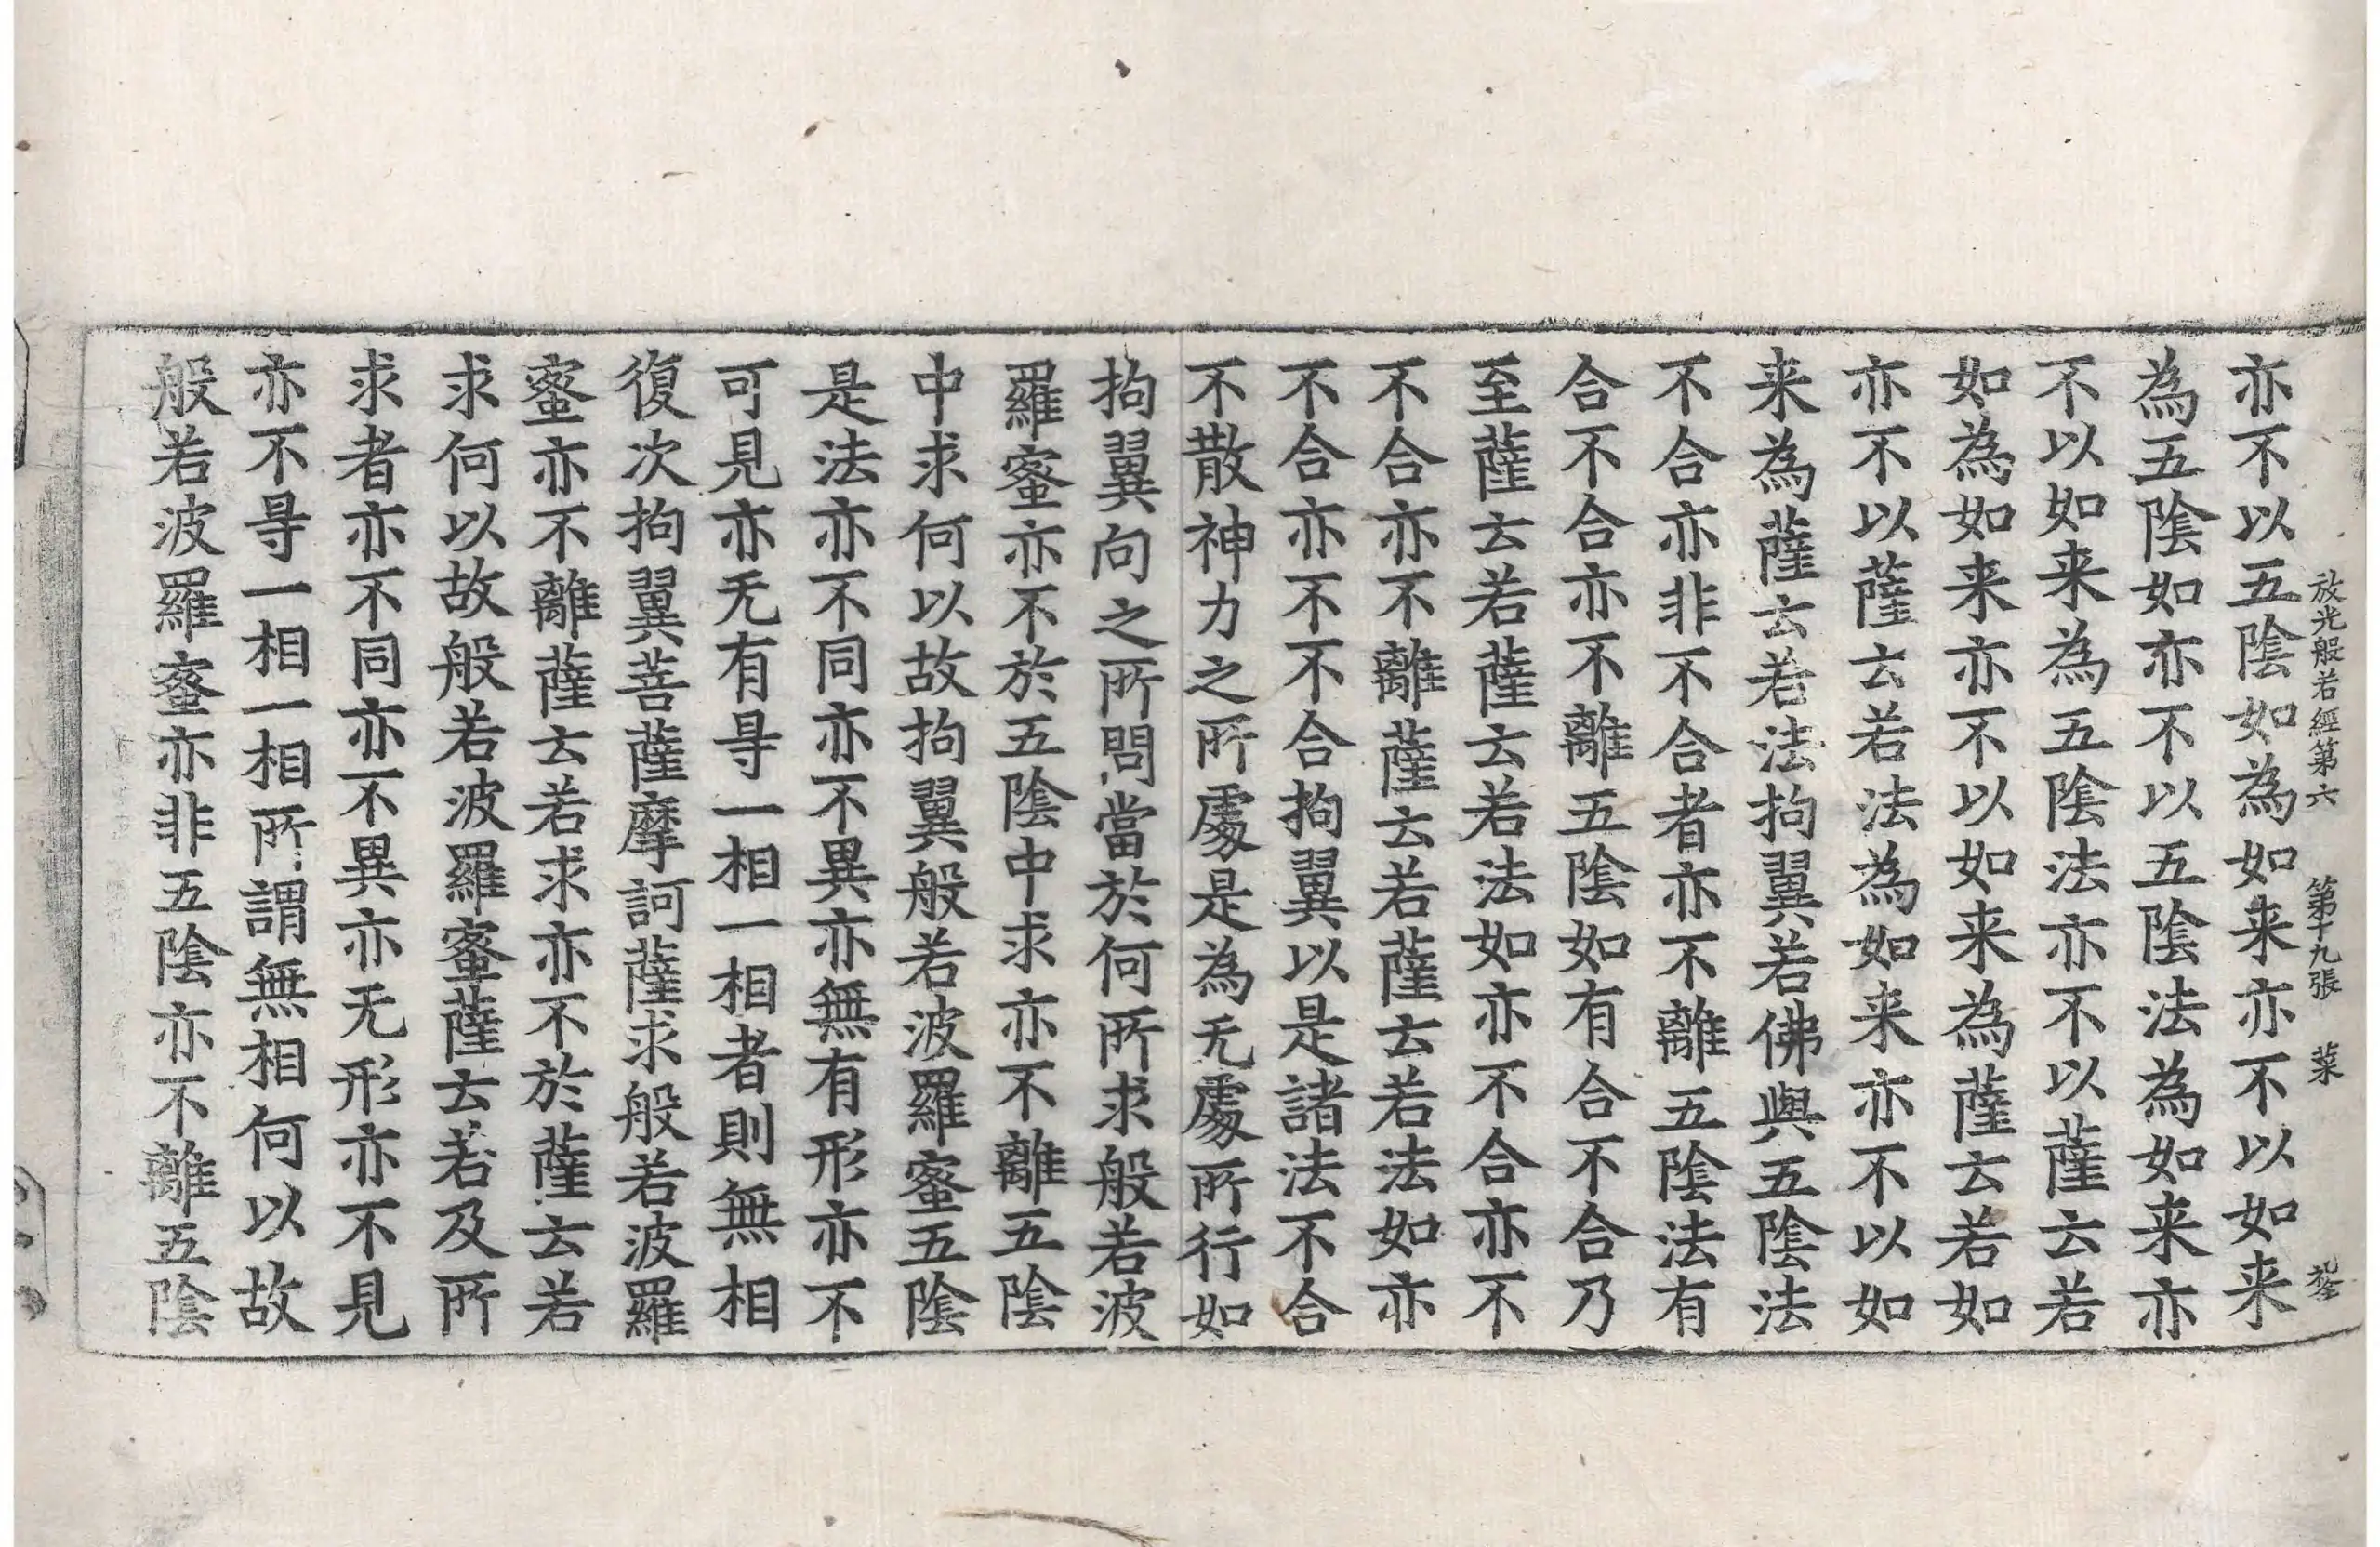 放光般若經第六 第十九張 菜
亦不以五陰如為如来亦不以如来
為五陰如亦不以五陰法為如来亦
不以如来為五陰法亦不以薩云若
如為如来亦不以如来為薩云若如
亦不以薩云若法為如来亦不以如
来為薩云若法拘翼若佛與五陰法
不合亦非不合者亦不離五陰法有
合不合亦不離五陰如有合不合乃
至薩云若薩云若法如亦不合亦不
不合亦不離薩云若薩云若法如亦
不合亦不不合拘翼以是諸法不合
不散神力之所處是為无處所行如
拘翼向之所問當於何所求般若波
羅蜜亦不於五陰中求亦不離五陰
中求何以故拘翼般若波羅蜜五陰
是法亦不同亦不異亦無有形亦不
可見亦无有㝵一相一相者則無相
復次拘翼菩薩摩訶薩求般若波羅
蜜亦不離薩云若求亦不於薩云若
求何以故般若波羅蜜薩云若及所
求者亦不同亦不異亦无形亦不見
亦不㝵一相一相所謂無相何以故
般若波羅蜜亦非五陰亦不離五陰